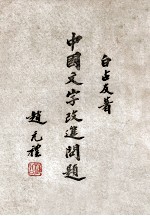 白占友著
中國文字改進問題
趙元禮